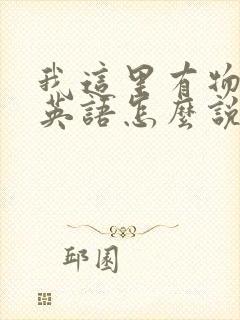 我這里有物
英語怎麼說
邱園